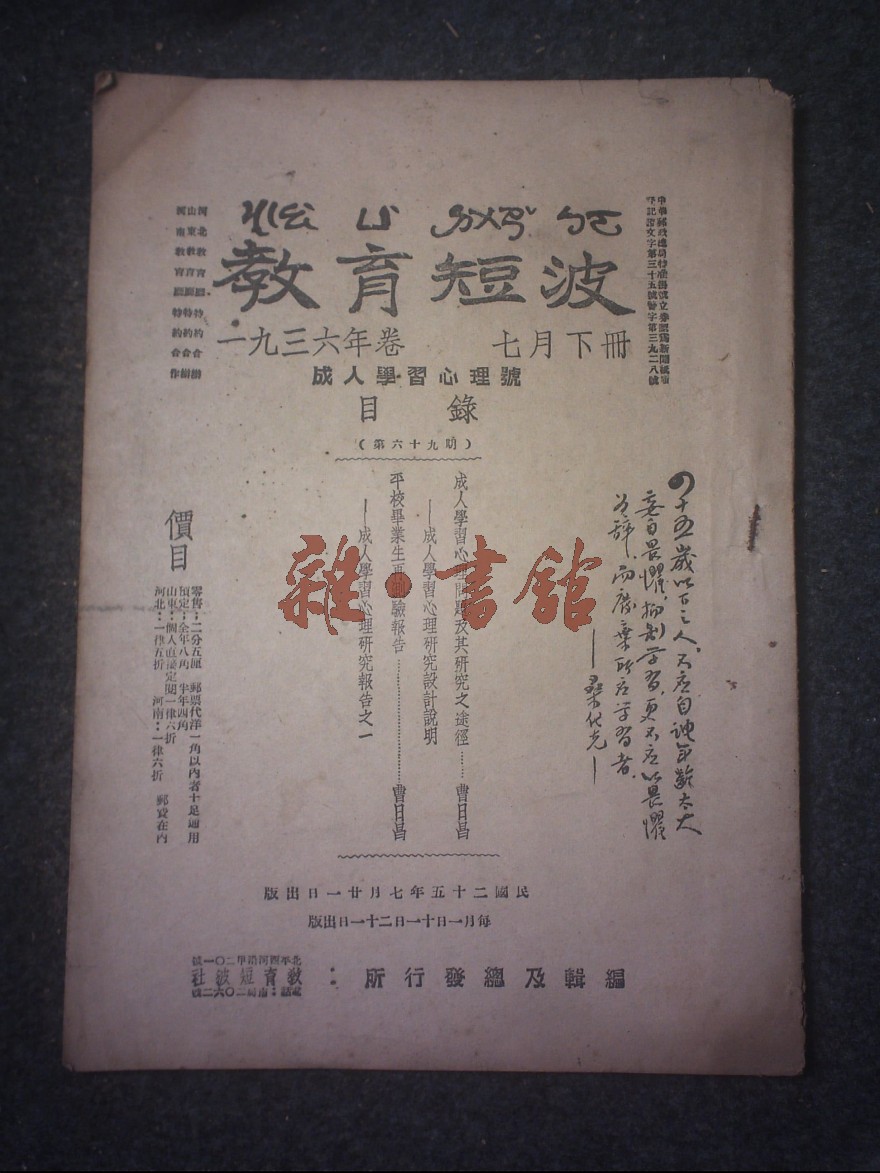 教育短波
一九三六年卷 七月下冊
成人學習心理號
目錄
(第六十九期)
登記證文字第三十五號警字第三九二八號
河北教育廳特約合辦
山東教育廳特約合辦
河南教育廳特約合作
四十五歲以下之人，不應自諉年齡太大
妄自畏懼，抑制學習，更不應以畏懼
為辭，而廢棄所應學習者。
——桑代克—
成人學習心理問題及其研究之途徑……曹日昌
——成人學習心理研究設計說明
平校畢業生再測驗報告……曹日昌
——成人學習心理研究報告之一
價目
零售：二分五厘 郵票代洋一角以內者十足通用
預定：全年八角 半年四角
山東：個人直接定閱一律六折
河北：一律五折 河南：一律六折 郵費在內
民國二十五年七月廿一日出版
每月一日十一日二十一日出版
編輯及總發行所：
北平西河沿甲二〇一號
教育短波社
電話：南局二〇六二號
雜·書館